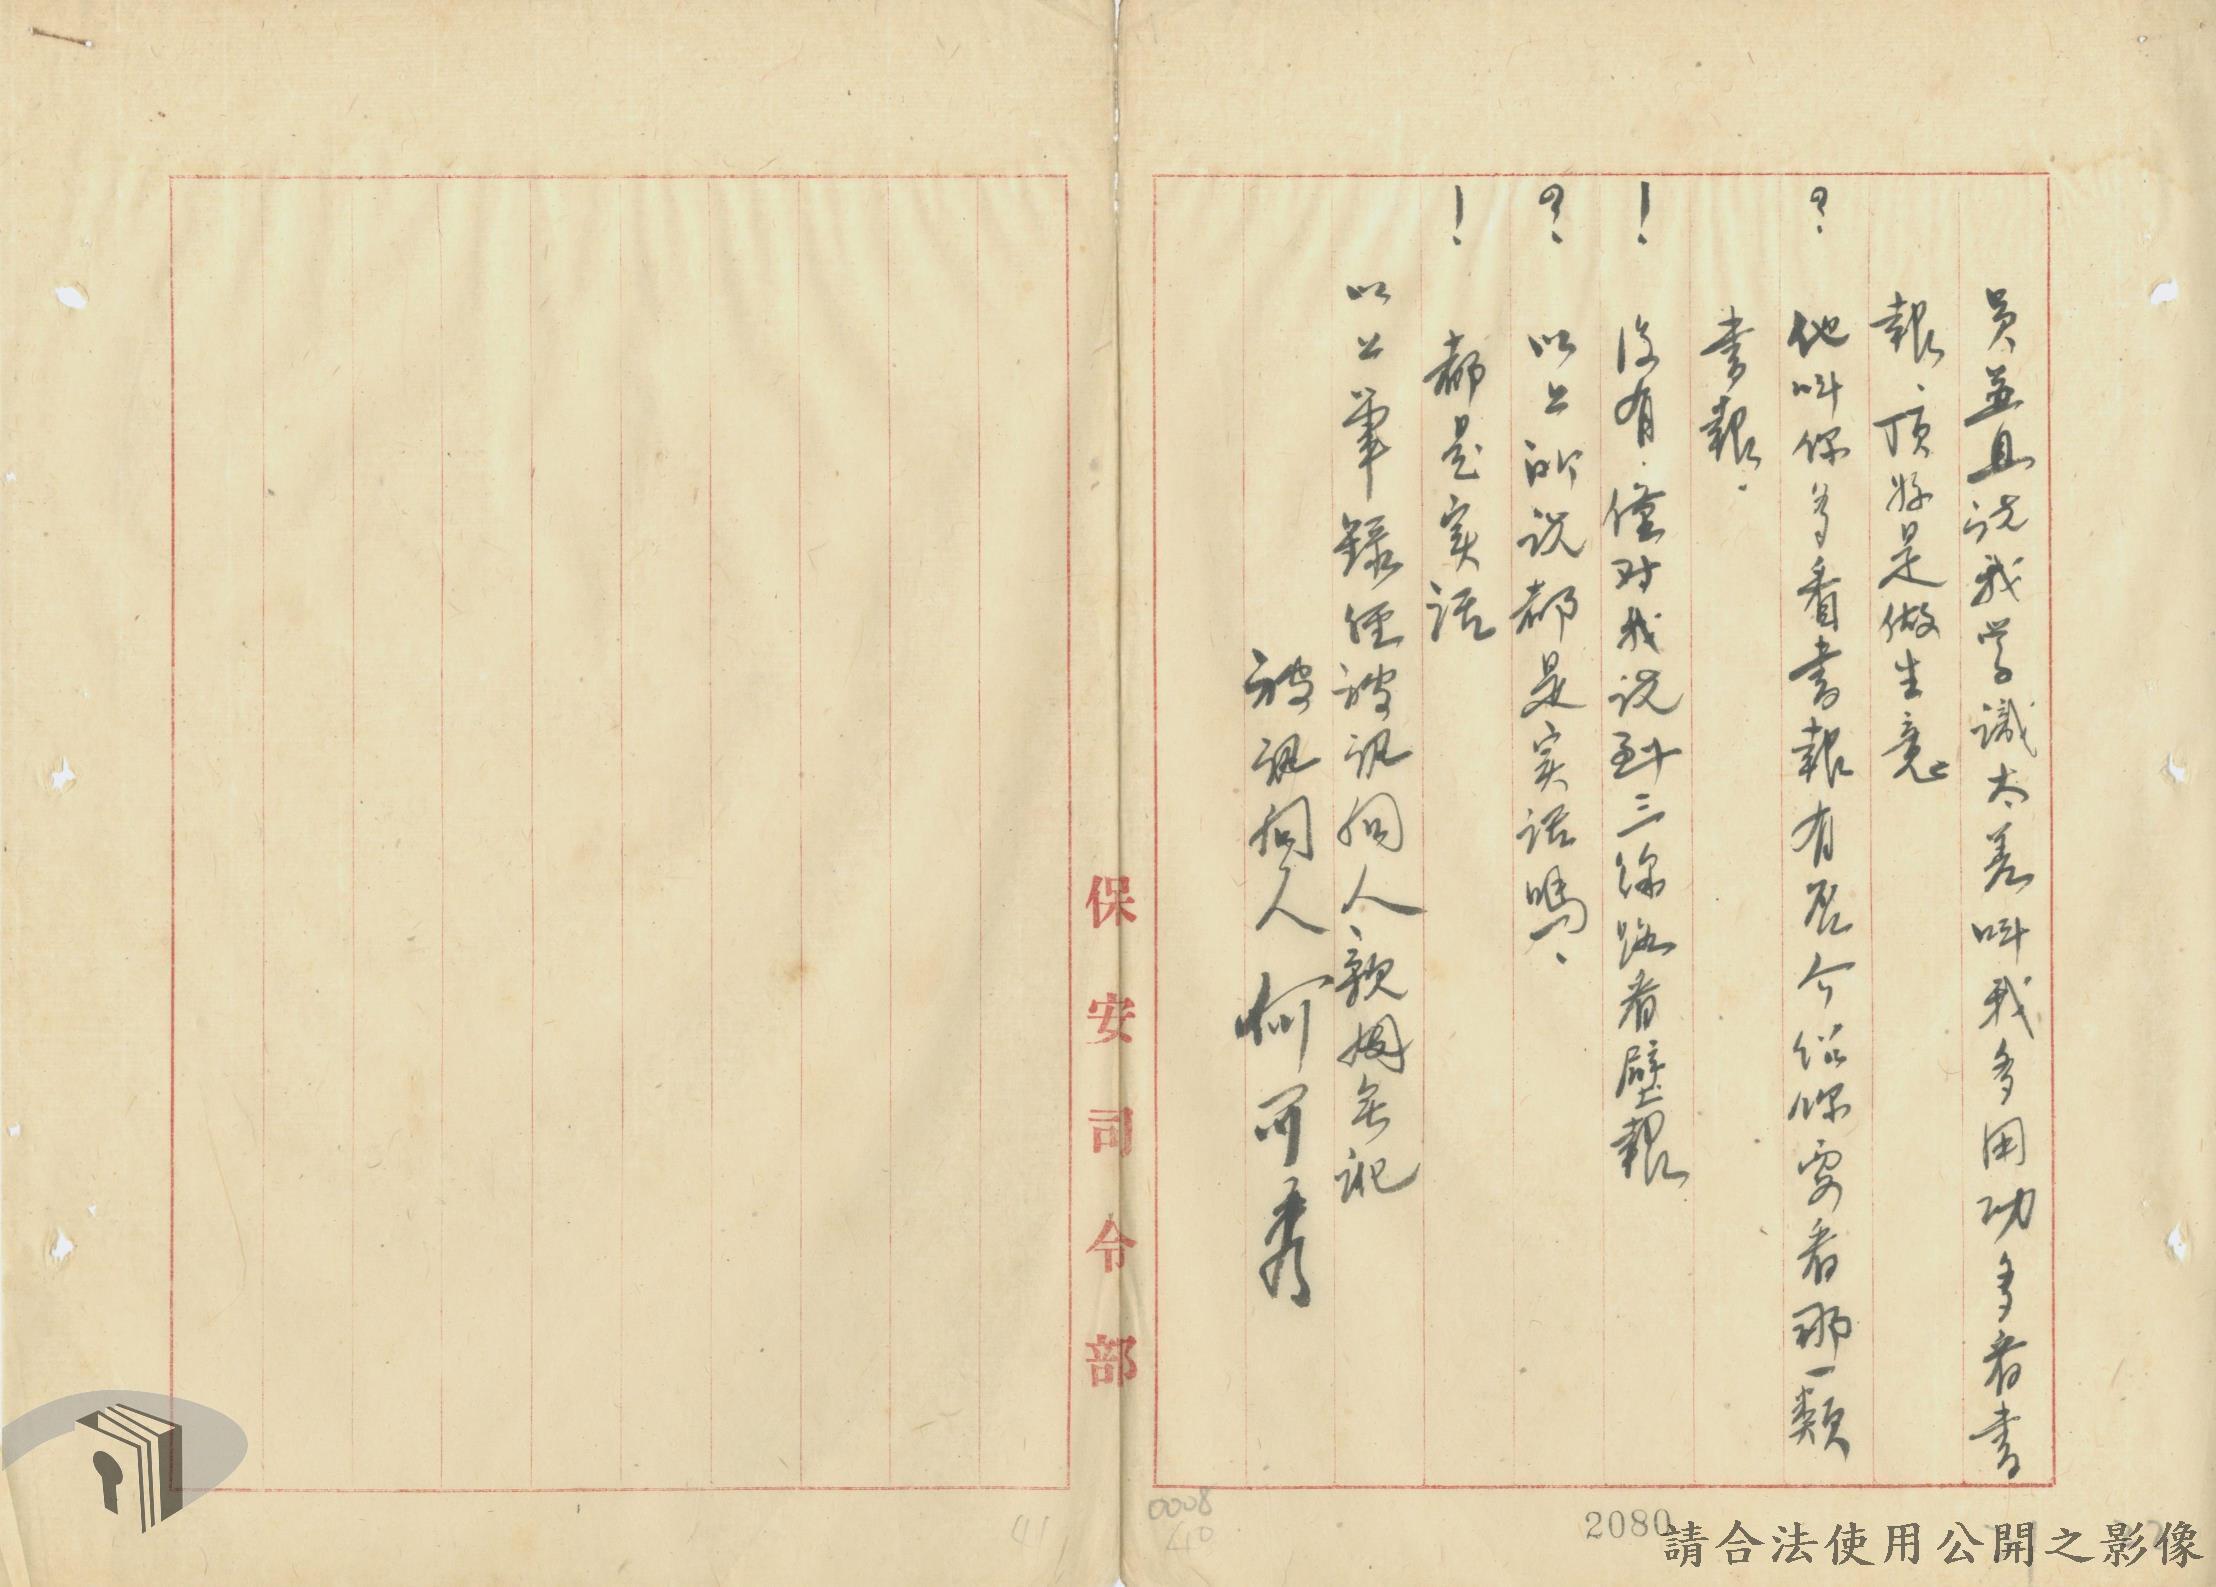 員並且说我学識太差叫我多用功多看書
報、頂好是做生意
? 他叫你多看書報有否介绍你要看那一類
書報.
! 沒有.僅对我说到三線路看壁報
? 以上所说都是实话嗎、
! 都是实话
以上筆錄經被訊問人親閱無訛
被訊問人 何可秀
保安司令部
0008
40
41
2080
請合法使用公開之影像